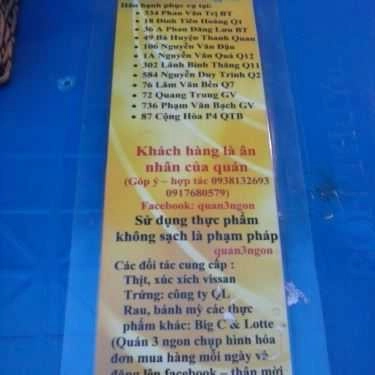 Hân hạnh phục vụ tại:
334 Phan Văn Trị BT
18 Đinh Tiên Hoàng Q1
36 A Phan Đăng Lưu BT
49 Bà Huyện Thanh Quan
106 Nguyễn Văn Đậu
1A Nguyễn Văn Quá Q12
302 Lãnh Binh Thăng Q11
584 Nguyễn Duy Trinh Q2
76 Lâm Văn Bền Q7
72 Quang Trung GV
736 Phạm Văn Bạch GV
87 Cộng Hòa P4 QTB
Khách hàng là ân
nhân của quán
(Góp ý – hợp tác 0938132693
0917680579)
Facebook: quan3ngon
Sử dụng thực phẩm
không sạch là phạm pháp
quan3ngon
Các đối tác cung cấp :
Thịt, xúc xích vissan
Trứng: công ty QL
Rau, bánh mỳ các thực
phẩm khác: Big C & Lotte
(Quán 3 ngon chụp hình hóa
đơn mua hàng mỗi ngày và
đăng lên facebook – thân mời